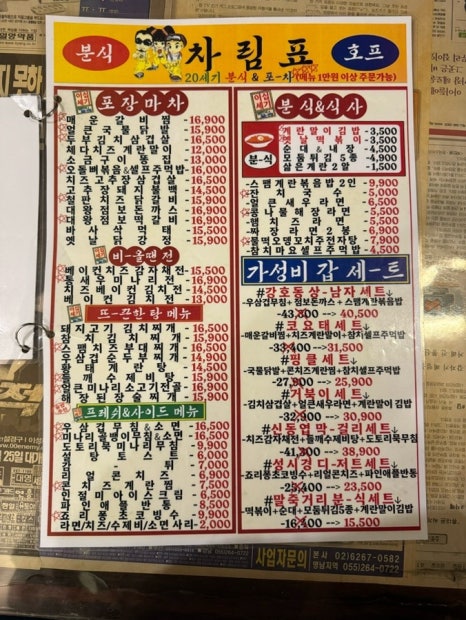 분식
차림표
호프
20세기 분식 & 포-차 (메뉴 1만원 이상 주문가능)
포장마차
매운갈비찜 - 16,900
얼큰국물닭발 - 15,900
두부김치삼겹살 - 16,500
체다치즈계란말이 - 12,000
소금구이똥집 - 13,000
오돌뼈볶음&셀프주먹밥 - 16,000
치즈고추장삼겹살 - 16,500
고추장돼지불백 - 14,500
철판치즈닭갈비 - 15,900
대왕점보돈까스 - 16,900
대왕점보떡갈비 - 16,900
바사삭먹태 - 15,500
옛날닭강정 - 15,900
비-올땐전
베이컨치즈감자채전 - 15,500
통새우미나리전 - 16,900
치즈베이컨김치전 - 14,500
베이컨김치전 - 13,000
뜨-끈한탕메뉴
돼지고기김치찌개 - 16,500
참치김치찌개 - 15,900
스팸치즈부대찌개 - 16,500
우삼겹순두부찌개 - 14,900
황태계란탕 - 14,500
들깨수제비탕 - 15,900
얼큰미나리소고기전골 - 15,900
해장된장술찌개 - 15,900
프레쉬&사이드 메뉴
우삼겹무침&소면 - 16,500
미나리골뱅이무침&소면 - 16,500
도토리묵미나리무침 - 9,500
설탕토스트 - 6,000
김튀 - 7,000
리얼콘치즈 - 6,900
콘치즈계란찜 - 7,500
인절미아이스크림 - 6,500
파인애플반통 - 8,500
죠리퐁초코빙수 - 9,900
라면/치즈/수제비/소면 사리 - 2,000
분식&식사
분-식
계란말이김밥 - 3,500
옛날떡볶이 - 3,900
순대&내장 - 4,500
모둠튀김5종 - 4,900
삶은계란2알 - 1,500
스팸계란볶음밥2인 - 9,900
잔치국수 - 5,000
얼큰새우라면 - 6,500
콩나물해장라면 - 5,500
햄치즈라면 - 5,500
짜장라면2봉 - 6,900
물떡오뎅꼬치주전자탕 - 7,900
참치마요셀프주먹밥 - 4,900
가성비 갑 세-트
#강호동상-남자세트↓
우삼겹무침+점보돈까스+스팸계란볶음밥
43,300 → 40,500
#코요태세트↓
매운갈비찜+치즈계란말이+참치셀프주먹밥
33,400 → 31,500
#핑클세트↓
국물닭발+콘치즈계란찜+참치셀프주먹밥
27,800 → 25,900
#거북이세트↓
김치삼겹살+얼큰새우라면+계란말이김밥
32,900 → 30,900
#신동엽막-걸리세트↓
치즈감자채전+들깨수제비탕+도토리묵무침
41,300 → 38,900
#성시경디-저트세트↓
죠리퐁초코빙수+리얼콘치즈+파인애플반통
25,400 → 23,500
#말죽거리분-식세트↓
떡볶이+순대+모둠튀김5종+계란말이김밥
16,400 → 15,500
사업자문의
본사 02)6267-0582
영남지역 055)264-0722